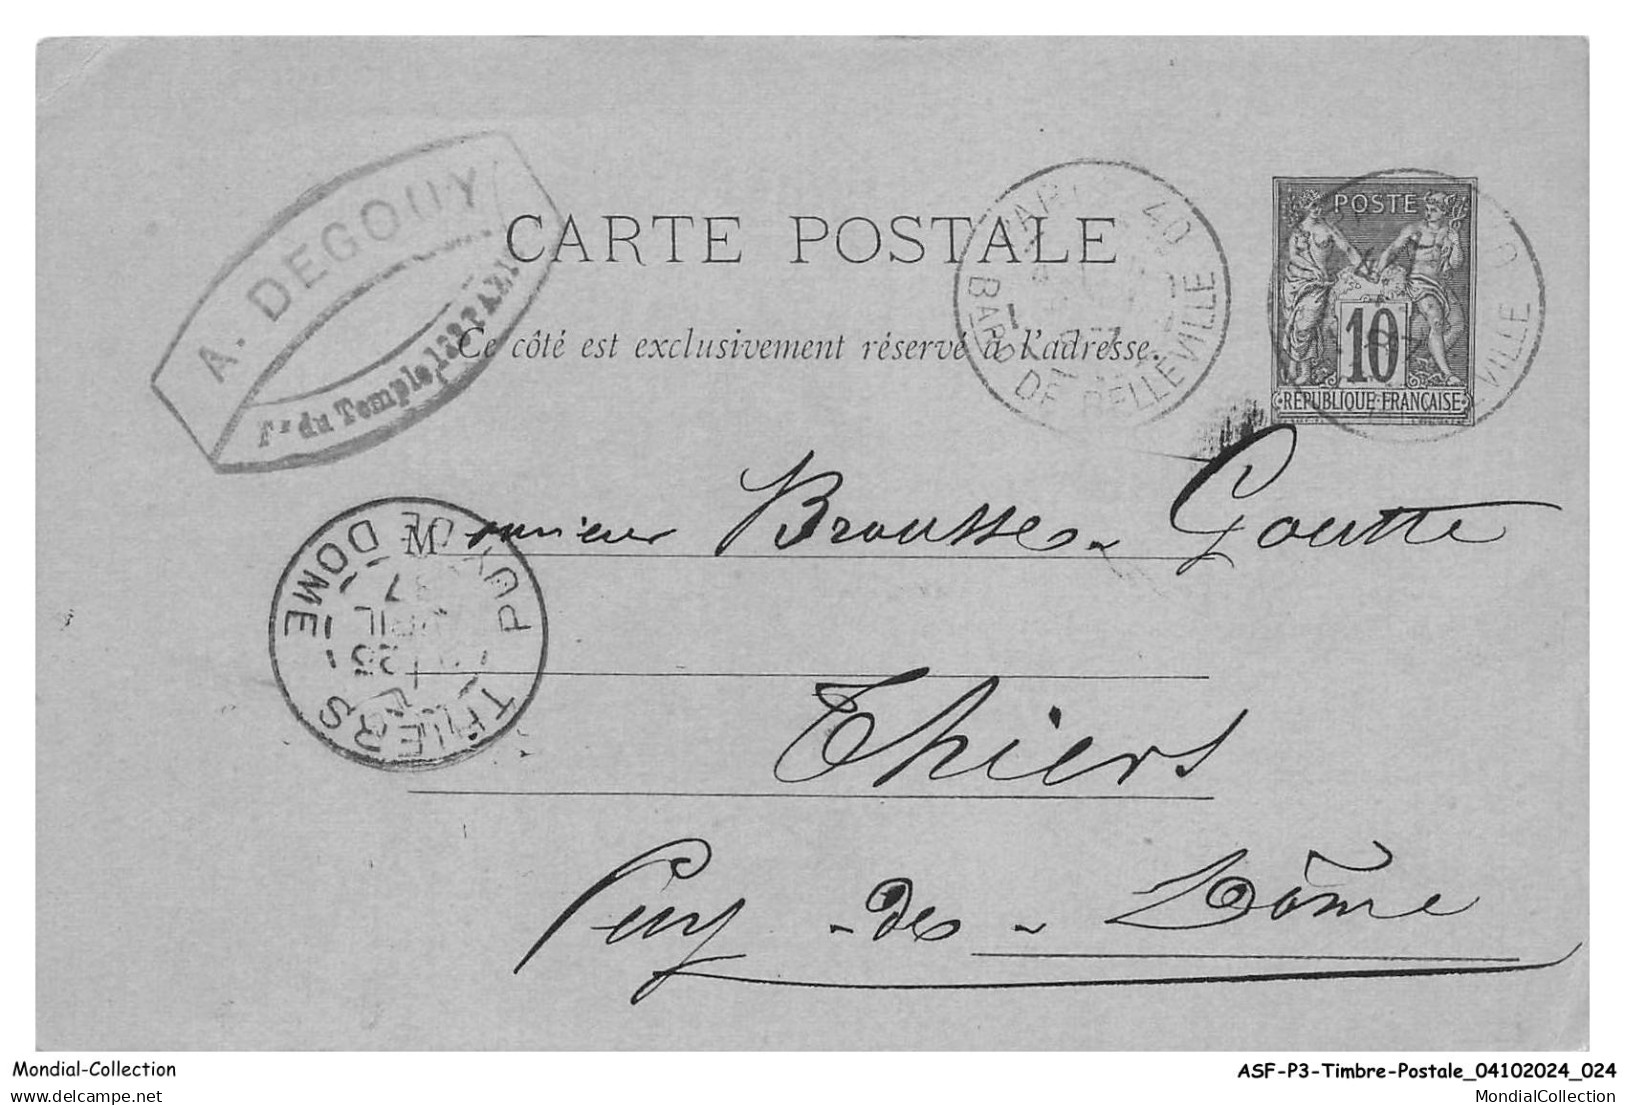 A. DEGOUY
Fg du Temple, 129 PARIS
CARTE POSTALE
Ce côté est exclusivement réservé à l'adresse.
PARIS 40
BARD DE BELLEVILLE
POSTE
10
RÉPUBLIQUE FRANÇAISE
VILLE
Monsieur Brousse-Goutte
Thiers
Puy-de-Dôme
THIERS
PUY DE DOME
25
AVRIL
Mondial-Collection
ASF-P3-Timbre-Postale_04102024_024
MondialCollection